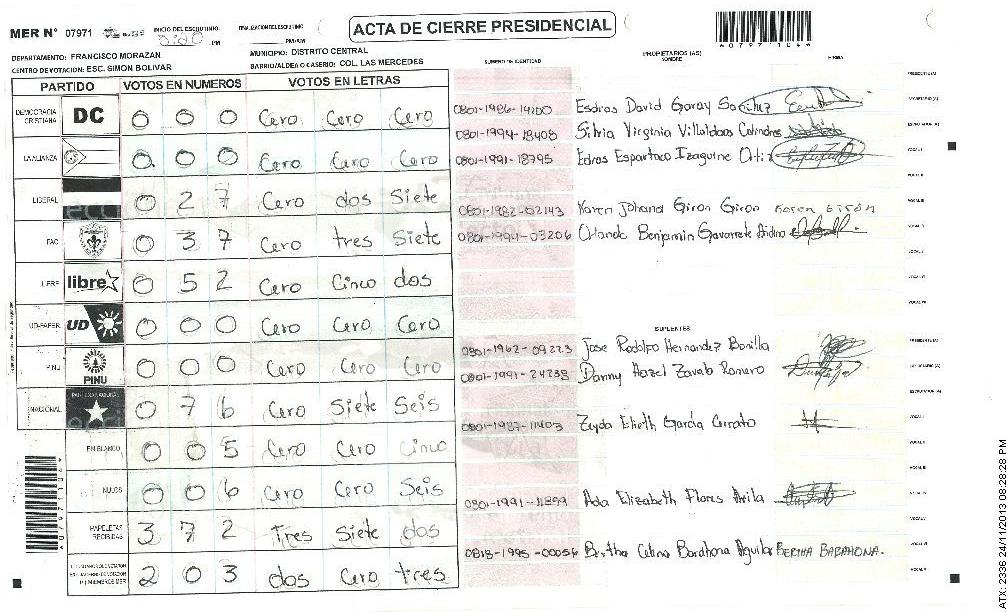 MER N° 07971
INICIO DEL ESCRUTINIO
PM
FINALIZACION DEL ESCRUTINIO
PM/AM
ACTA DE CIERRE PRESIDENCIAL
DEPARTAMENTO: FRANCISCO MORAZAN
MUNICIPIO: DISTRITO CENTRAL
CENTRO DE VOTACION: ESC. SIMON BOLIVAR
BARRIO/ALDEA O CASERIO: COL. LAS MERCEDES
NUMERO DE IDENTIDAD
PROPIETARIOS (AS)
NOMBRE
FIRMA
PARTIDO VOTOS EN NUMEROS VOTOS EN LETRAS
DEMOCRACIA CRISTIANA DC 0 0 0 Cero Cero Cero
LA ALIANZA 0 0 0 Cero Cero Cero
LIBERAL 0 2 7 Cero dos Siete
PAC 0 3 7 Cero tres Siete
LIBRE libre 0 5 2 Cero Cinco dos
UD-FAPER UD 0 0 0 Cero Cero Cero
PINU PINU 0 0 0 Cero Cero Cero
NACIONAL 0 7 6 Cero Siete Seis
EN BLANCO 0 0 5 Cero Cero Cinco
NULOS 0 0 6 Cero Cero Seis
PAPELETAS RECIBIDAS 3 7 2 Tres Siete dos
2 0 3 dos Cero tres
0801-1986-14200 Esdras David Garay Sanchez
0801-1994-18408 Silvia Virginia
0801-1991-18795 Edros Espartaco Izaguirre
0801-1982-02143 Karen Johana Giron Giron Karen Girón
0801-1994-03206 Orlando Benjamin
SUPLENTES
0801-1962-09223 Jose Rodolfo Hernandez Bonilla
0801-1991-24238 Danny Hazel
0801-1987-11403 Zeyda Elieth Garcia Cerrato
0801-1991-11899 Ada Elizabeth Flores Avila
0818-1995-00056 Bertha Celina Barahona Aguilar BERTHA BARAHONA.
ATX: 2336 24/11/2013 08:28:28 PM